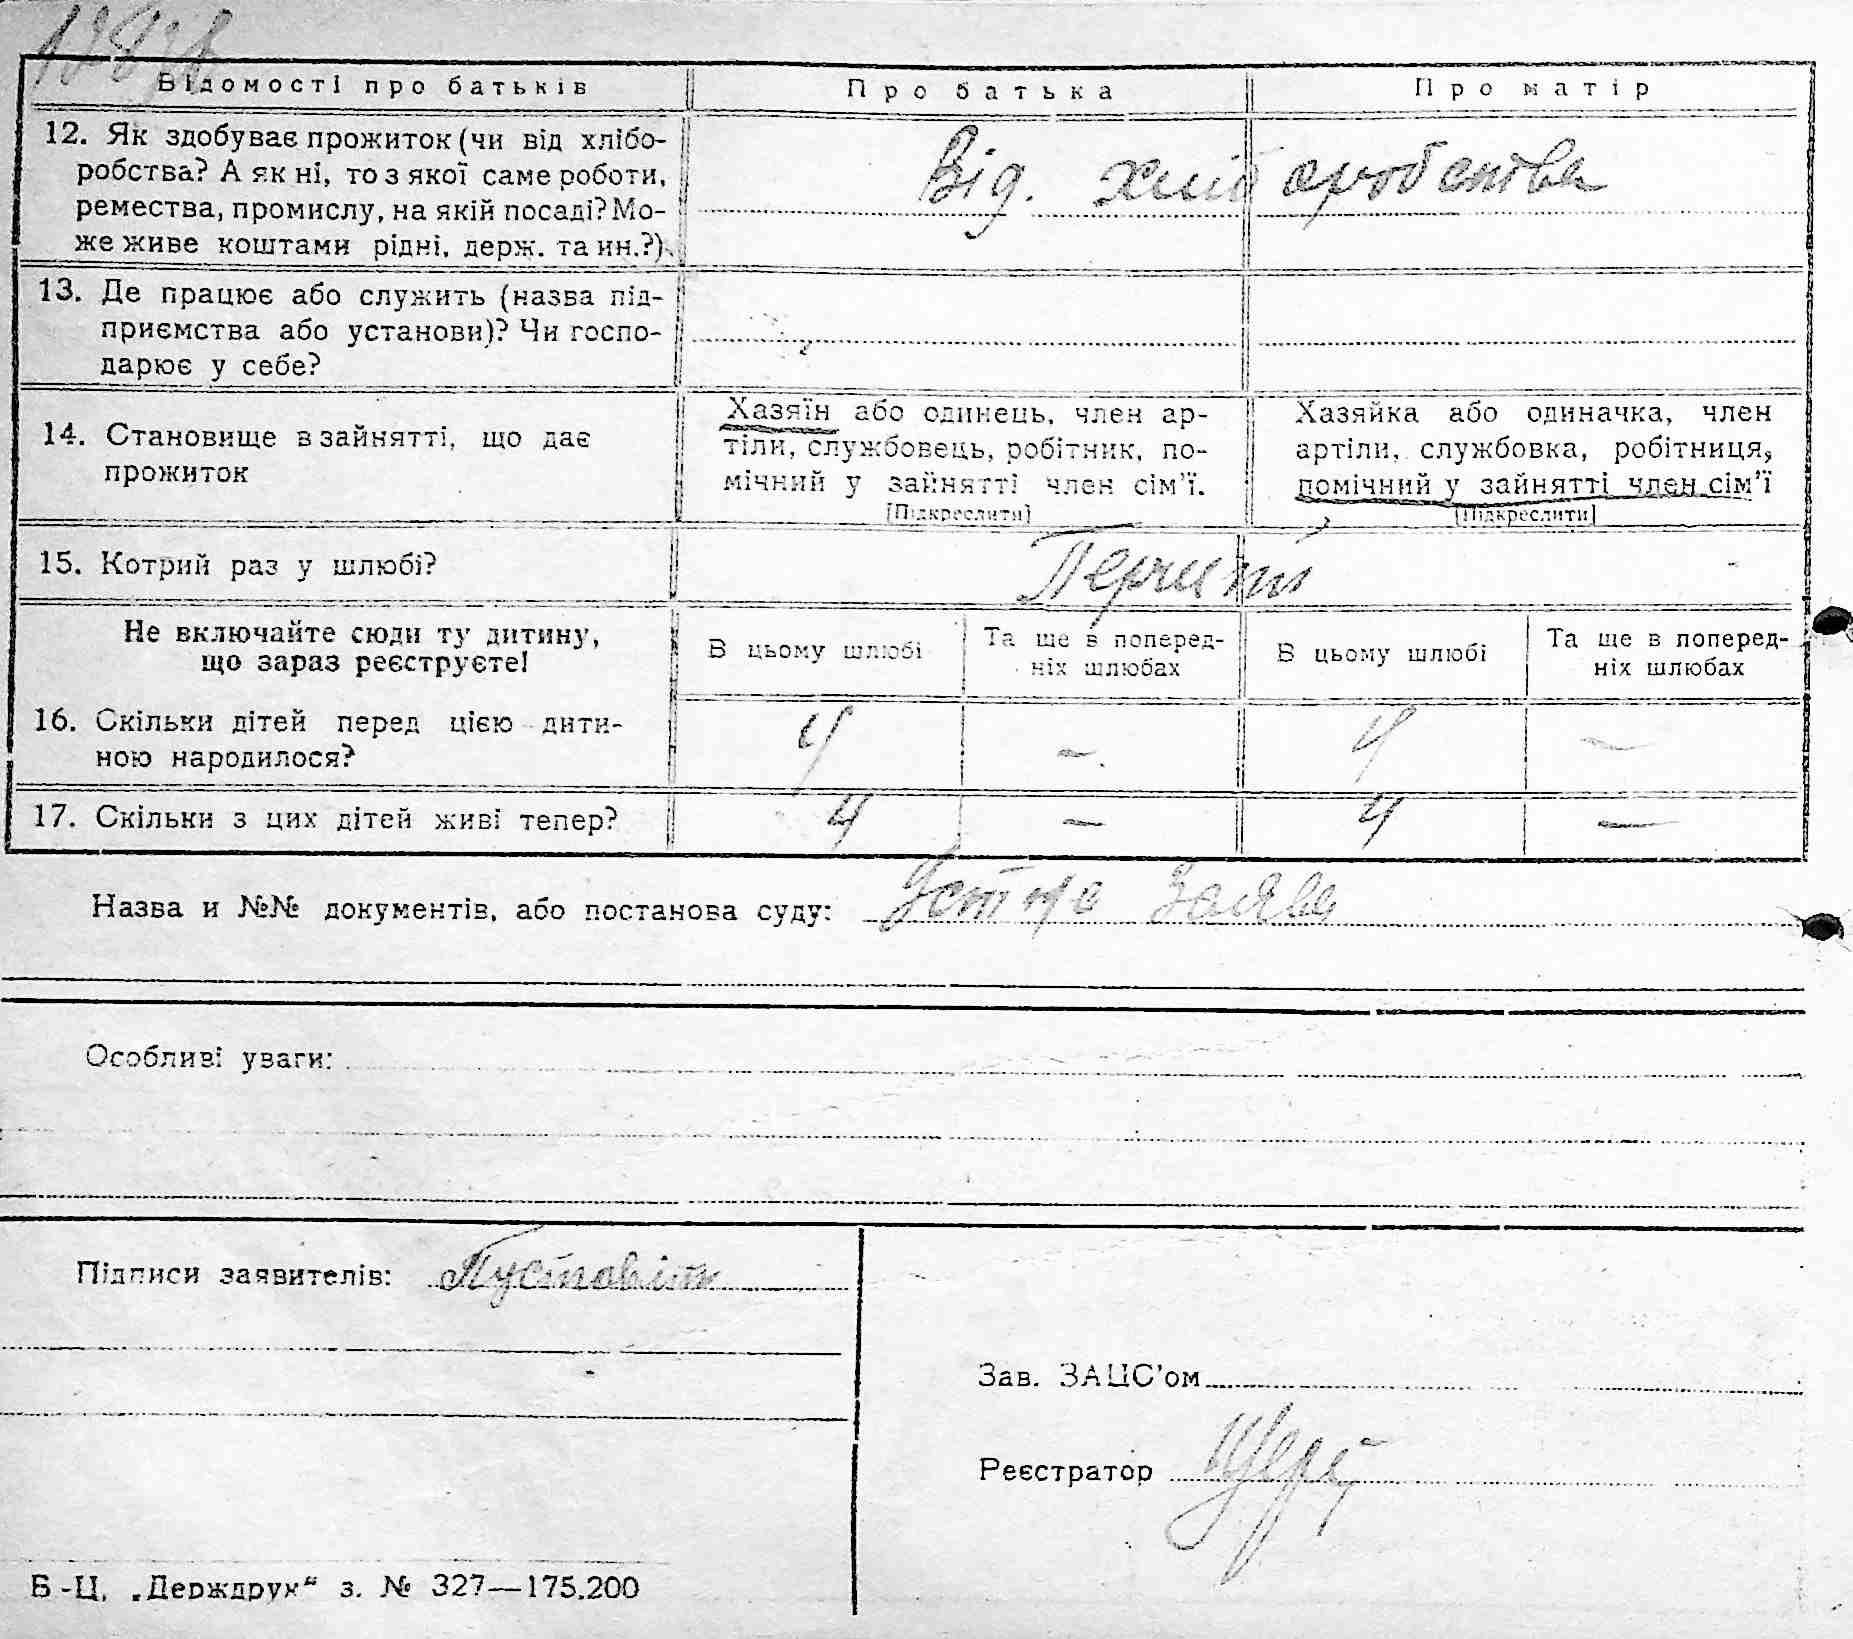 Відомості про батьків
Про батька
Про матір
12. Як здобуває прожиток (чи від хлібо-
робства? А як ні, то з якої саме роботи,
ремества, промислу, на якій посаді? Мо-
же живе коштами рідні, держ. та ин.?)
Від. хліборобства
13. Де працює або служить (назва під-
приємства або установи)? Чи госпо-
дарює у себе?
14. Становище в зайнятті, що дає
прожиток
Хазяїн або одинець, член ар-
тіли, службовець, робітник, по-
мічний у зайнятті член сім'ї.
[Підкреслити]
Хазяйка або одиначка, член
артіли, службовка, робітниця,
помічний у зайнятті член сім'ї
[Підкреслити]
15. Котрий раз у шлюбі?
Не включайте сюди ту дитину,
що зараз реєструєте!
В цьому шлюбі
Та ще в поперед-
ніх шлюбах
В цьому шлюбі
Та ще в поперед-
ніх шлюбах
16. Скільки дітей перед цією дити-
ною народилося?
4 – 4 –
17. Скільки з цих дітей живі тепер?
4 – 4 –
Назва и №№ документів, або постанова суду: Устна заява
Особливі уваги:
Підписи заявителів: Пустовіт
Зав. ЗАЦС'ом
Реєстратор
Б-Ц. „Держдрук“ з. № 327—175.200